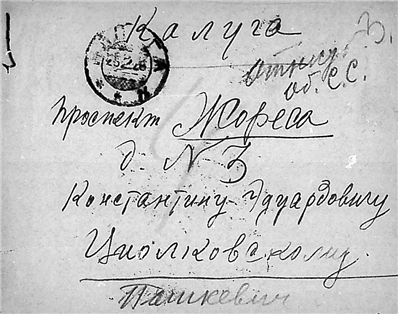 Калуга
25.2.28
Проспект Жореса
д. N 3
Константину Эдуардовичу
Циолковскому.
Пашкевич